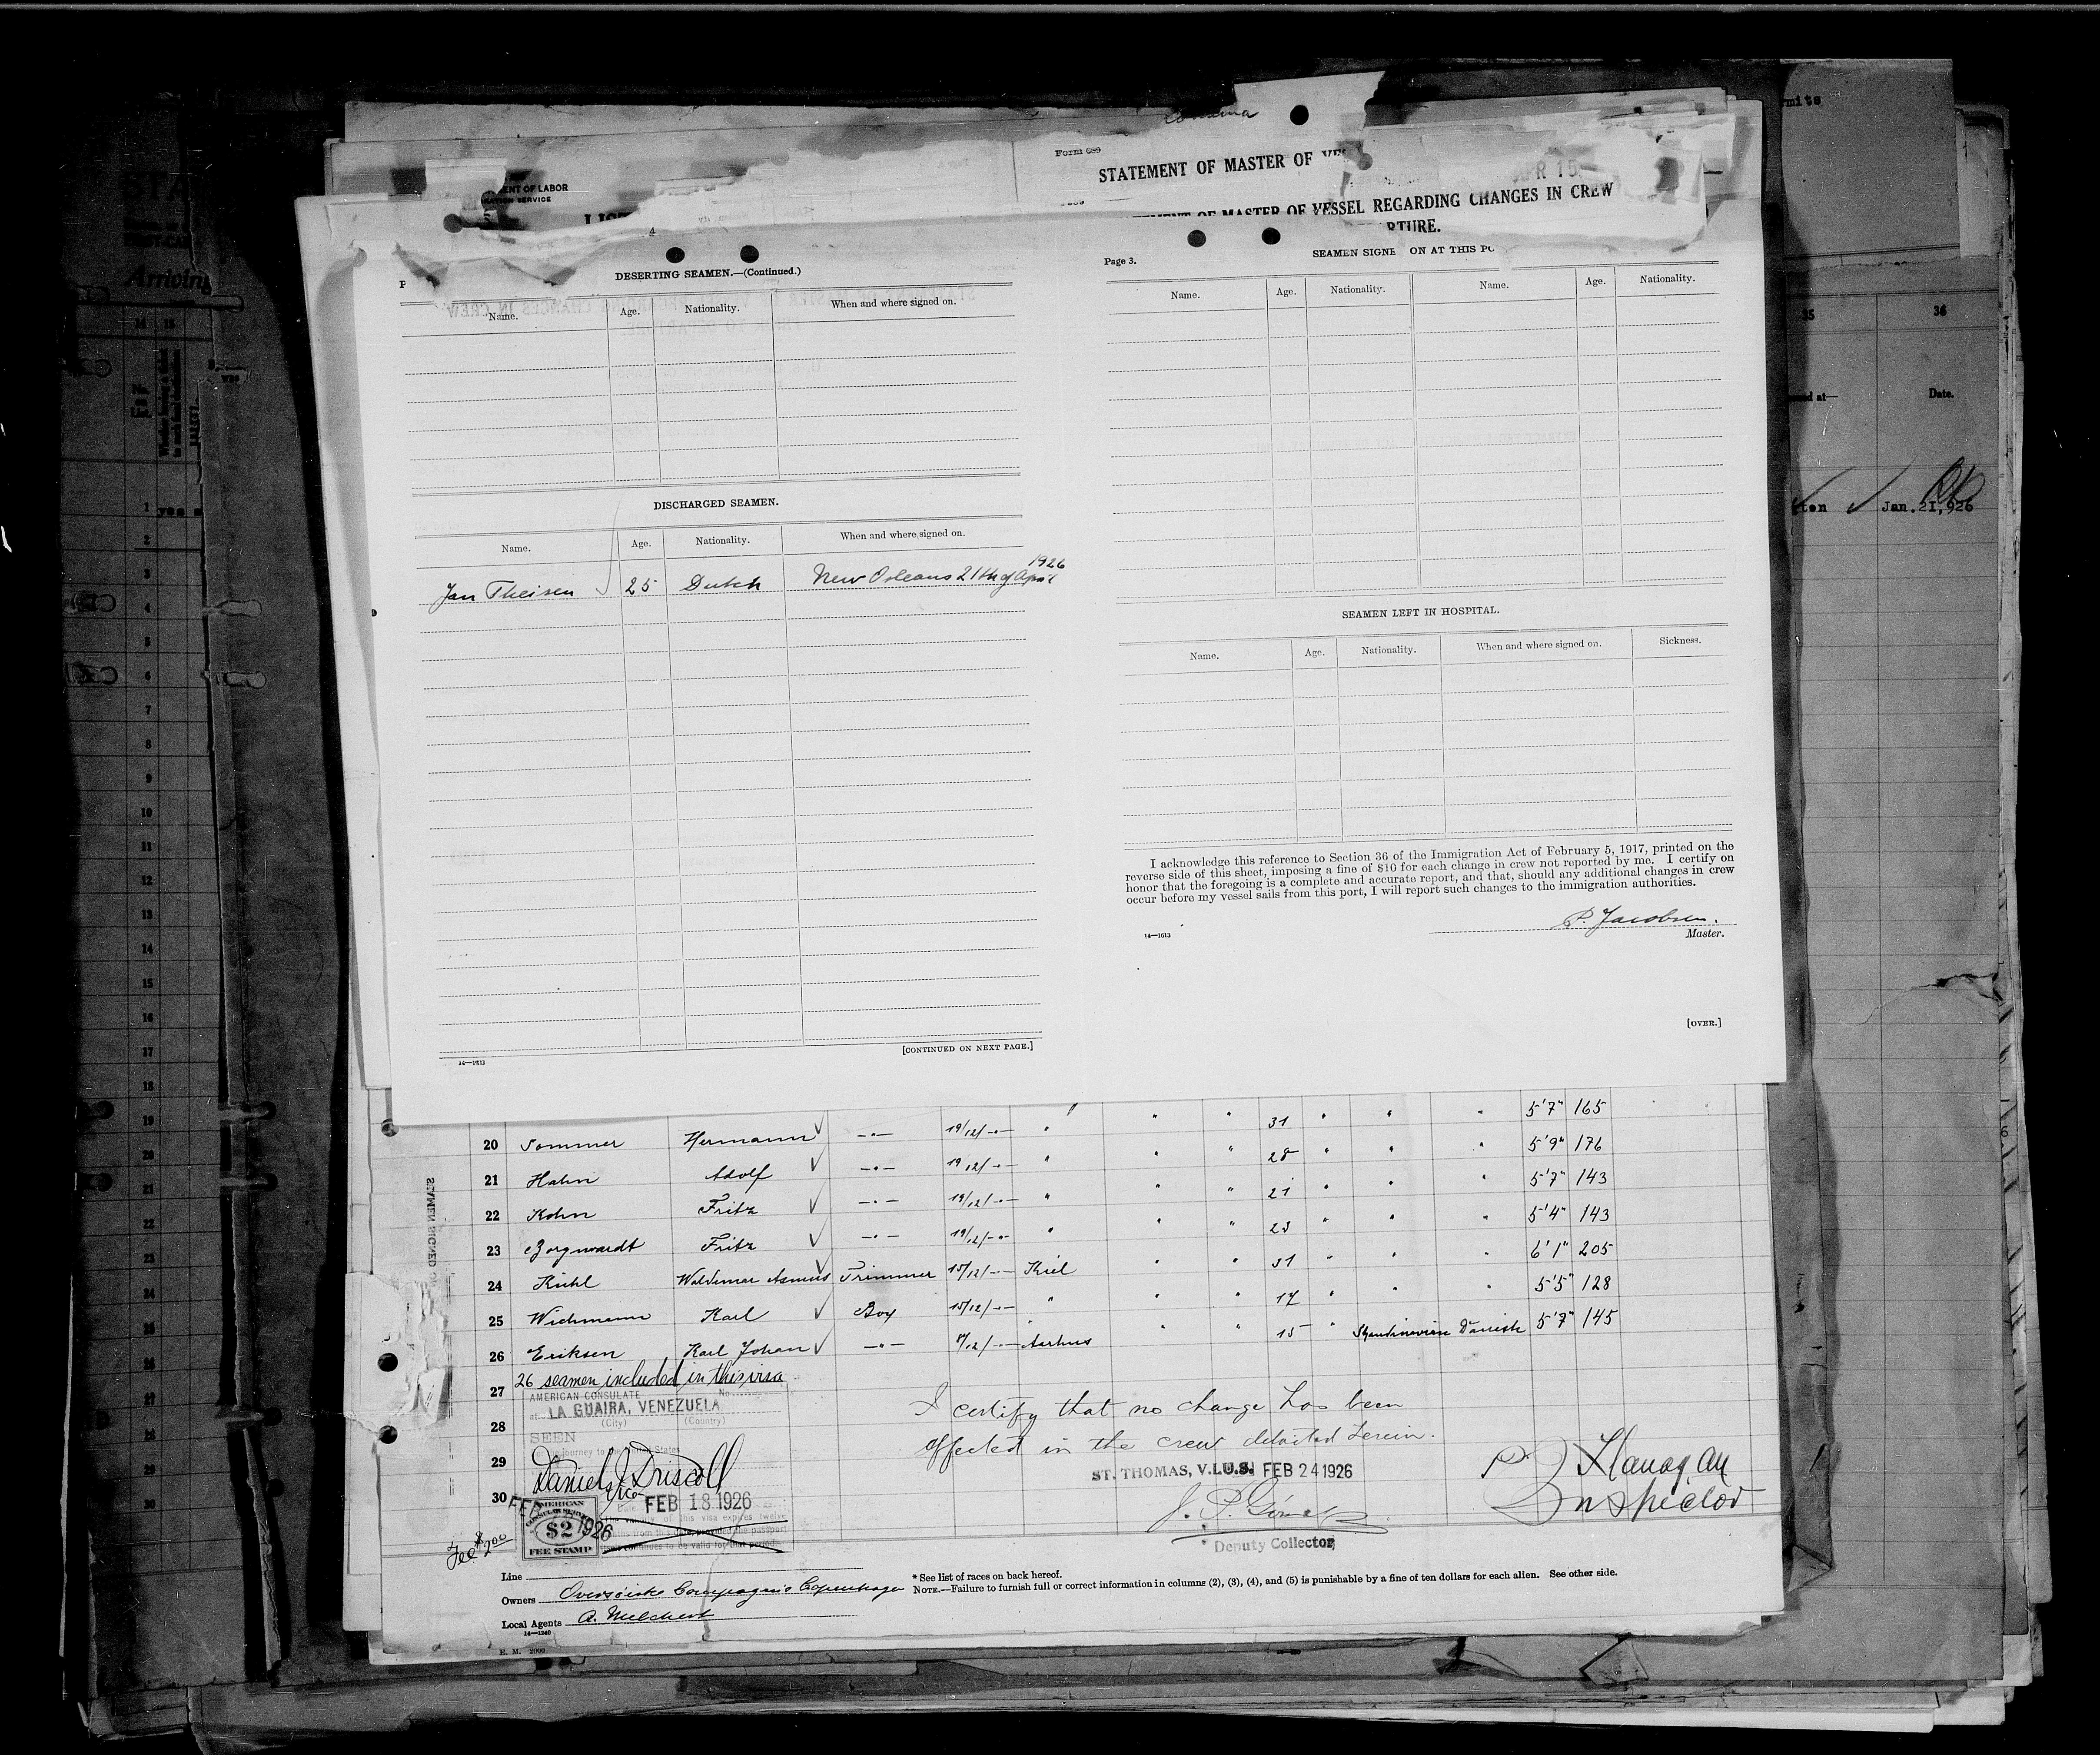 Form 689
STATEMENT OF MASTER OF
OF MASTER OF VESSEL REGARDING CHANGES IN CREW
APR 15
DESERTING SEAMEN.—(Continued.)
Name. Age. Nationality. When and where signed on.
DISCHARGED SEAMEN.
Name. Age. Nationality. When and where signed on.
Jan Theisen 25 Dutch New Orleans 21th of April 1926
14—1613
[CONTINUED ON NEXT PAGE.]
Page 3.
SEAMEN SIGNE ON AT THIS PO
Name. Age. Nationality. Name. Age. Nationality.
SEAMEN LEFT IN HOSPITAL.
Name. Age. Nationality. When and where signed on. Sickness.
I acknowledge this reference to Section 36 of the Immigration Act of February 5, 1917, printed on the
reverse side of this sheet, imposing a fine of $10 for each change in crew not reported by me. I certify on
honor that the foregoing is a complete and accurate report, and that, should any additional changes in crew
occur before my vessel sails from this port, I will report such changes to the immigration authorities.
P. Jacobsen.
Master.
14—1613
[OVER.]
20 Sommer Hermann 19/12/ 31 5'7" 165
21 Hahn Adolf 19/12/ 28 5'9" 176
22 Kohn Fritz 19/12/ 21 5'7" 143
23 Borgwardt Fritz 19/12/ 23 5'4" 143
24 Kühl Waldemar Asmus Trimmer 15/12/ Kiel 31 6'1" 205
25 Wichmann Karl Boy 15/12/ 17 5'5" 128
26 Eriksen Karl Johan Aarhus 15 Skandinavian Danish 5'7" 145
26 seamen included in this visa
27
28
29
30
AMERICAN CONSULATE No.
at LA GUAIRA, VENEZUELA
(City) (Country)
SEEN
Daniel J. Driscoll
Date FEB 18 1926
AMERICAN
CONSULAR SERVICE
$2
FEE STAMP
Fee $2.00
I certify that no change has been
effected in the crew detailed herein.
ST. THOMAS, V.I.U.S. FEB 24 1926
Deputy Collector
Flanagan
Inspector
Line
Owners Oversöiske Compagnie Copenhagen
Local Agents A. Melchert
14—1240
* See list of races on back hereof.
NOTE.—Failure to furnish full or correct information in columns (2), (3), (4), and (5) is punishable by a fine of ten dollars for each alien. See other side.
Arriving
14 15
35 36
Date.
Jan. 21, 926